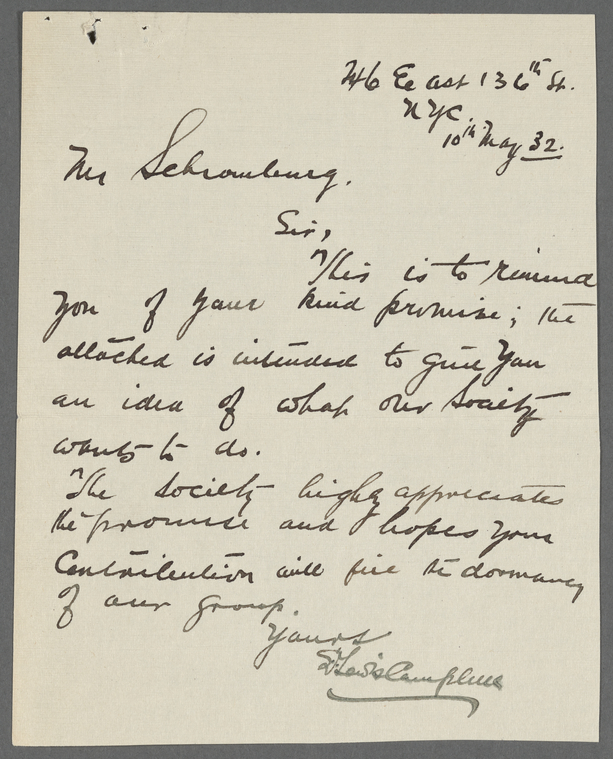 246 East 136th St.
NYC.
10th May 32.
Mr Schromburg.
Sir,
This is to remind
you of your kind promise; the
attached is intended to give you
an idea of what our Society
wants to do.
The society highly appreciates
the promise and hopes your
Contribution will fire the dormancy
of our group.
Yours
Lewis Campbell